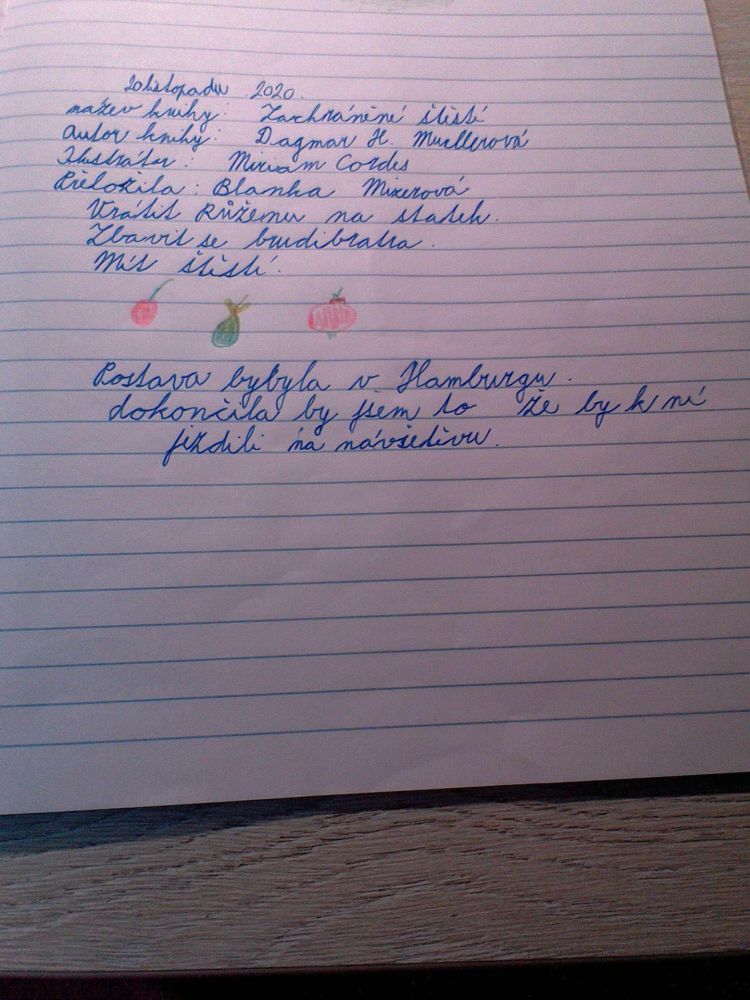 20listopadu 2020.
název knihy: Zachránění štěstí
autor knihy: Dagmar H. Muellerová
Ilustrátor: Miriam Cordes
Přeložila: Blanka Mixerová
Vrátit Růženu na statek.
Zbavit se brudibratra.
Mít štěstí.
Postava bybyla v Hamburgu.
dokončila by jsem to že by k ní
jezdili na návštěvu.